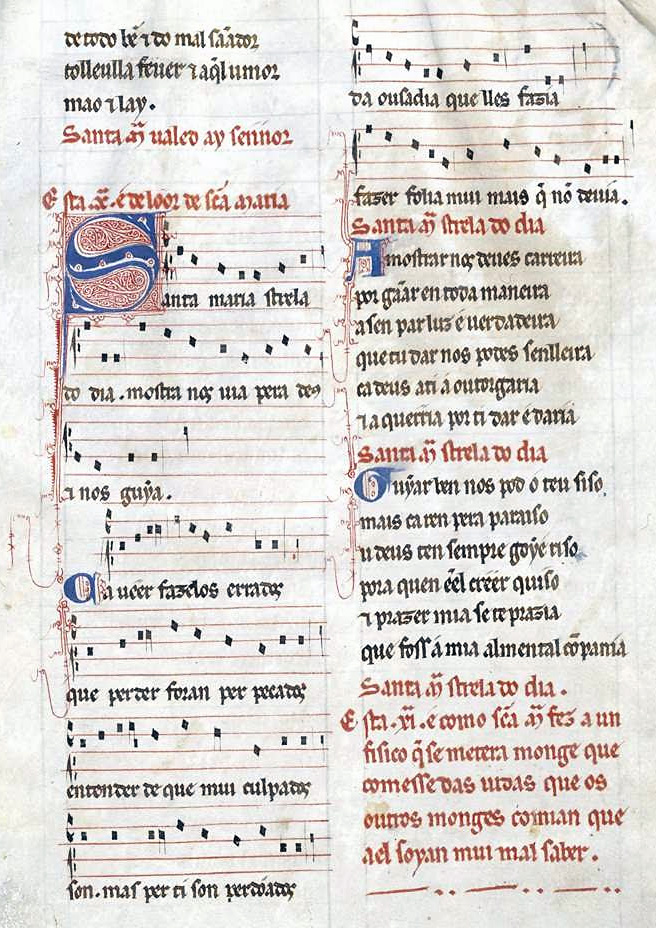 de todo bẽ ⁊ do mal sãador
tolleulla feuer ⁊ aq̃l umor
mao ⁊ lay.
Santa M̃ ualed ay sennor
Esta .x̃. é de loor de sc̃a maria
Santa maria strela
do dia. mostra nos uia pera deꝯ
⁊ nos guya.
Ca ueer fazelos errados
que perder foran per pecados
entender de que mui culpados
son. mas per ti son perdõados
da ousadia que lles fazia
fazer folia mui mais q̃ nõ deuia.
Santa M̃ strela do dia
Amostrar nos deues carreira
por gãar en toda maneira
a sen par luz é uerdadeira
que tu dar nos podes senlleira
ca deus ati á outorgaria
⁊ a querria por ti dar é daria
Santa M̃ strela do dia
Guyar ben nos pod o teu siso
mais ca ren pera parayso
u deus ten sempre goy e riso
pora quen éel creer quiso
⁊ prazer mia se te prazia
que foss á mia alm en tal cõpania
Santa M̃ strela do dia.
Esta .xi. é como sc̃a M̃ fez a un
fisico q̃ se metera monge que
comesse das uidas que os
outros monges comian que
a el soyan mui mal saber.